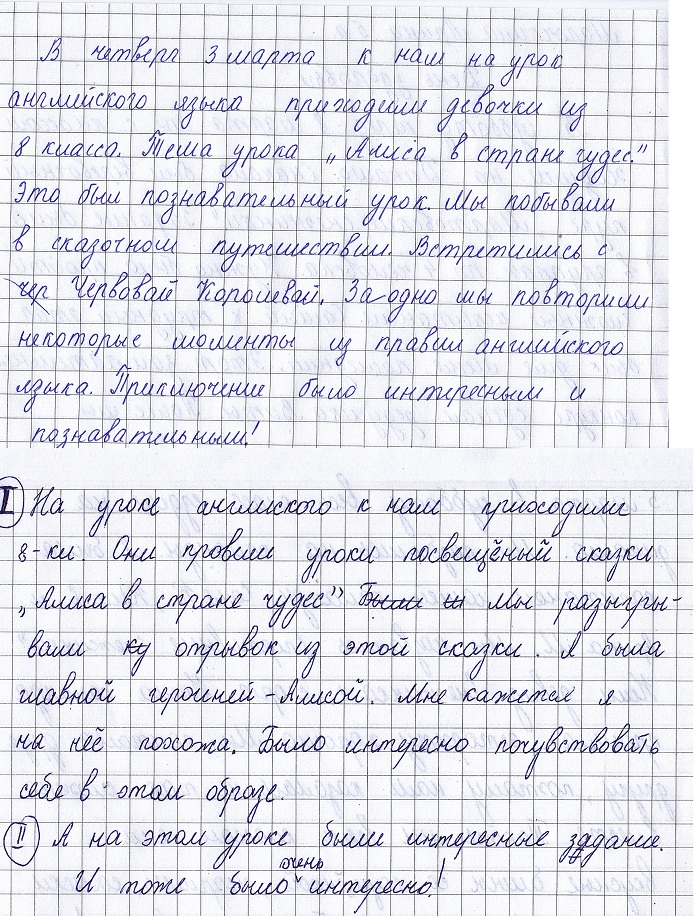 В четверг 3 марта к нам на урок
английского языка приходили девочки из
8 класса. Тема урока „Алиса в стране чудес."
Это был познавательный урок. Мы побывали
в сказочном путешествии. Встретились с
чер Червовай Королевай. Заодно мы повторили
некоторые моменты из правил английского
языка. Приключение было интересным и
познавательным!
I На уроке англиского к нам приходили
8-ки. Они провели уроки посвещёный сказки
„Алиса в стране чудес" Были ш Мы разыгры-
вали ку отрывок из этой сказки. Я была
главной героиней - Алисой. Мне кажется я
на неё похожа. Было интересно почувствовать
себя в этом образе.
II А на этом уроке были интересные задание.
И тоже было очень интересно!